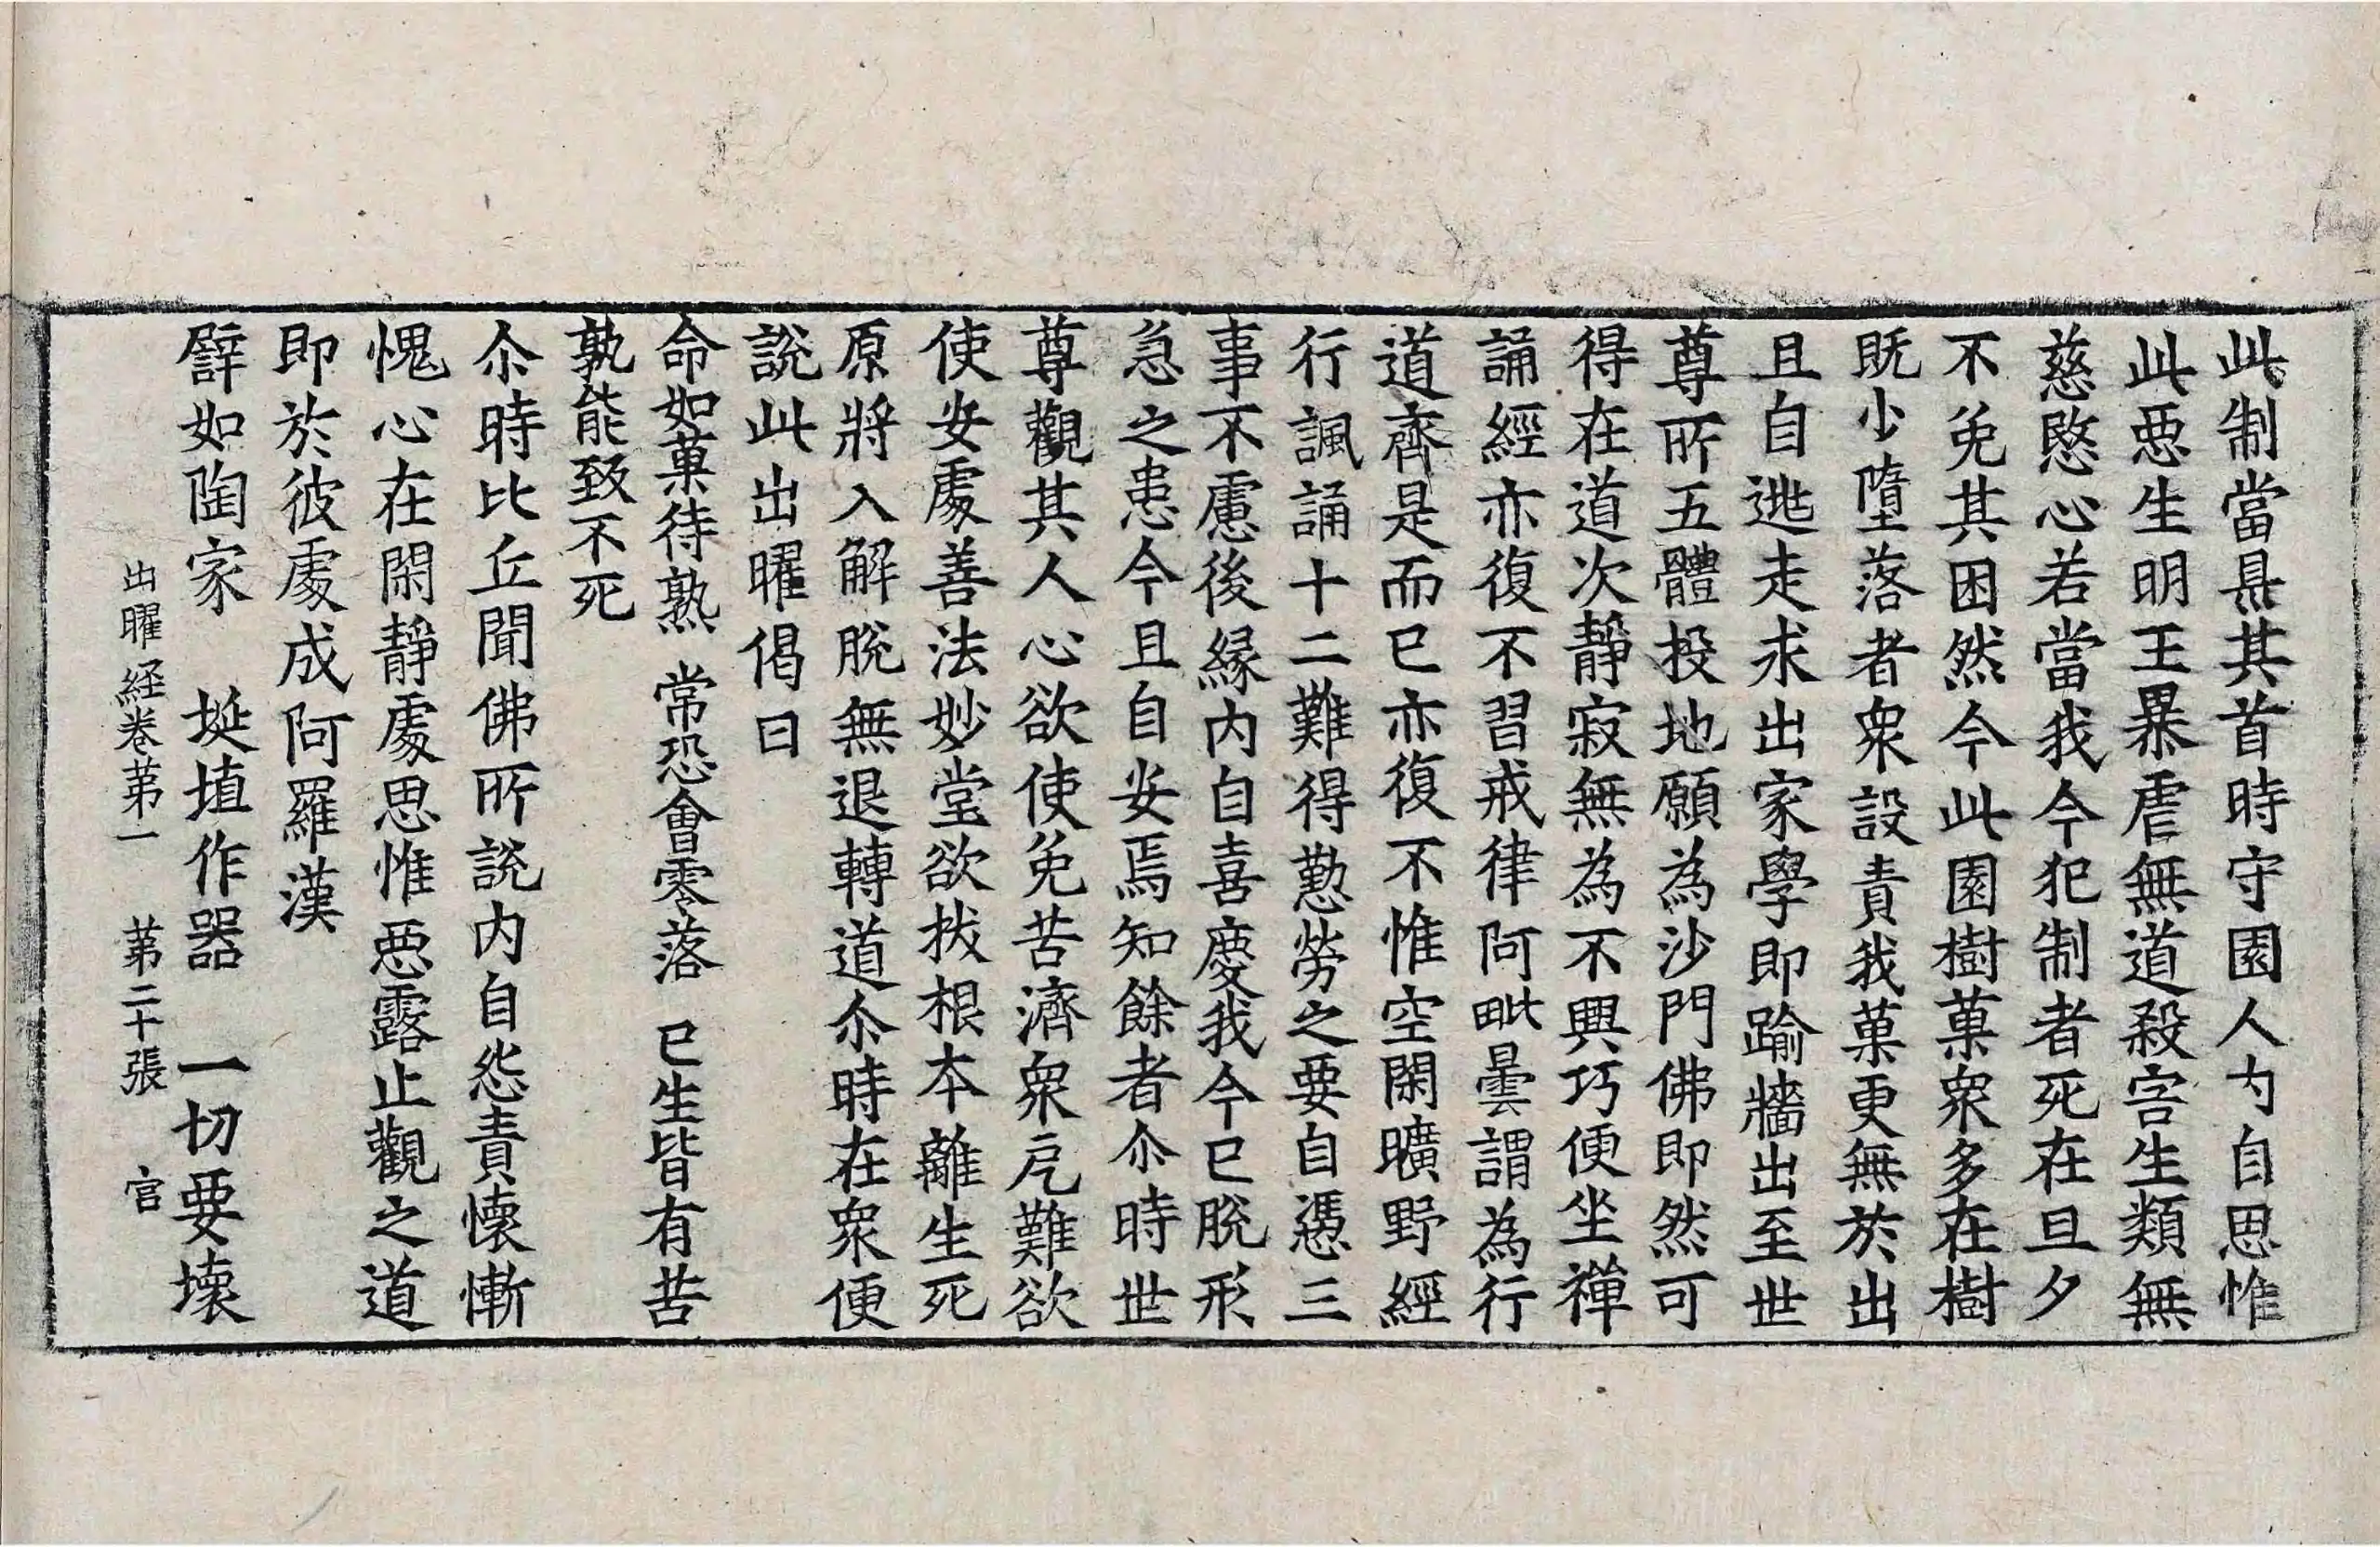 此制當㬎其首時守園人內自思惟
此惡生明王暴虐無道殺害生類無
慈愍心若當我今犯制者死在旦夕
不免其困然今此園樹菓衆多在樹
既少墮落者衆設責我菓更無於出
且自逃走求出家學即踰牆出至世
尊所五體投地願為沙門佛即然可
得在道次靜寂無為不興巧便坐禪
誦經亦復不習戒律阿毗曇謂為行
道齊是而已亦復不惟空閑曠野經
行諷誦十二難得懃勞之要自憑三
事不慮後緣內自喜慶我今已脫形
急之患今且自安焉知餘者尒時世
尊觀其人心欲使免苦濟衆戹難欲
使安處善法妙堂欲拔根本離生死
原將入解脫無退轉道尒時在衆便
說此出曜偈曰
命如菓待熟 常恐會零落 已生皆有苦
孰能致不死
尒時比丘聞佛所說內自怨責懷慚
愧心在閑靜處思惟惡露止觀之道
即於彼處成阿羅漢
譬如陶家 埏埴作器 一切要壞
出曜経卷第一 第二十張 官